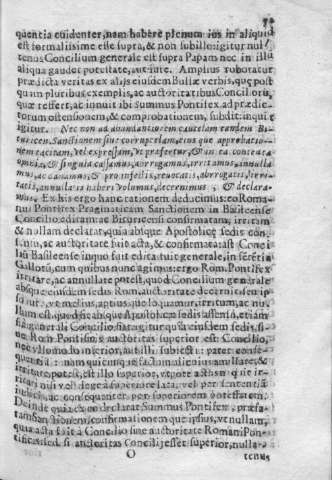 quentia euidenter, nam habere plenum ius in aliquid
est formalissime esse supra, & non subillo. igitur nul
tenus Concilium generale est supra Papam nec in illū
aliqua gaudet potestate, aut iure. Amplius roboratur
prædicta veritas ex alijs eiusdem Bullæ verbis, que post
quàm pluribus exemplis, ac auctoritatibus Conciliorū,
quæ reffert, ac innuit ibi Summus Pontifex ad prædic-
torum ostensionem, & comprobationem, subdit. inqui
igitur. Nec non ad abundantiorem cautelam eandem Bi-
turicem. Sanctionem siue corruptelam, eius que approbatio-
nem tacitam, vel expressam, vt præfertur, & in ea contenta
omnia, & singula cassamus, abrogamus, irritamus, annulla
mus, ac damnamus, & pro infectis, reuocatis, abrogatis, irri-
tatis, annullatis haberi volumus, decernimus, & declara-
mus. Ex his ergo hanc rationem deducimus: eo Roma-
nus Pontifex Pragmaticam Sanctionem in Basileense
Concilio editam: ac Bituricensi confirmatam, irritam
& nullam declarat, quia absque Apostolicę sedis con-
sensu, ac auctoritate fuit acta, & confirmata: ast Conci
liū Basileense inquo fuit edita fuit generale, in
Gallorū, cum quibus nunc agimus: ergo Rom. Pontifex
irritare, ac annullare potest, quod Concilium generale
absque eiusdem sedis Rom. auctoritate decernit
vt melius, aptius, quo loquamur, irritum, ac nul
lum est, quod sit absque Apostolicæ sedis assensu, etiam
generali Concilio. sit igitur quia eiusdem sedis, si-
ue Rom Pontificis auctoritas superior est Concilio,
nec vllo modo inferior, aut illi subiecta: patet conse-
quentia: nam quicunque
irritare potest, est illo superior, vt pote
vel lege à superiore lata, vel per sententiā
ac consequenter per superiorem potestatem.
Deinde quia ex eo declarat Summus Pontifex, præfa-
tam Sanctionem, confirmationem que ipsius, vt nullam,
quia acta fuit à Concilio sine auctoritate Romani Pon-
tificis: sed si auctoritas Concilij esset superior, nulla-
O
tenus